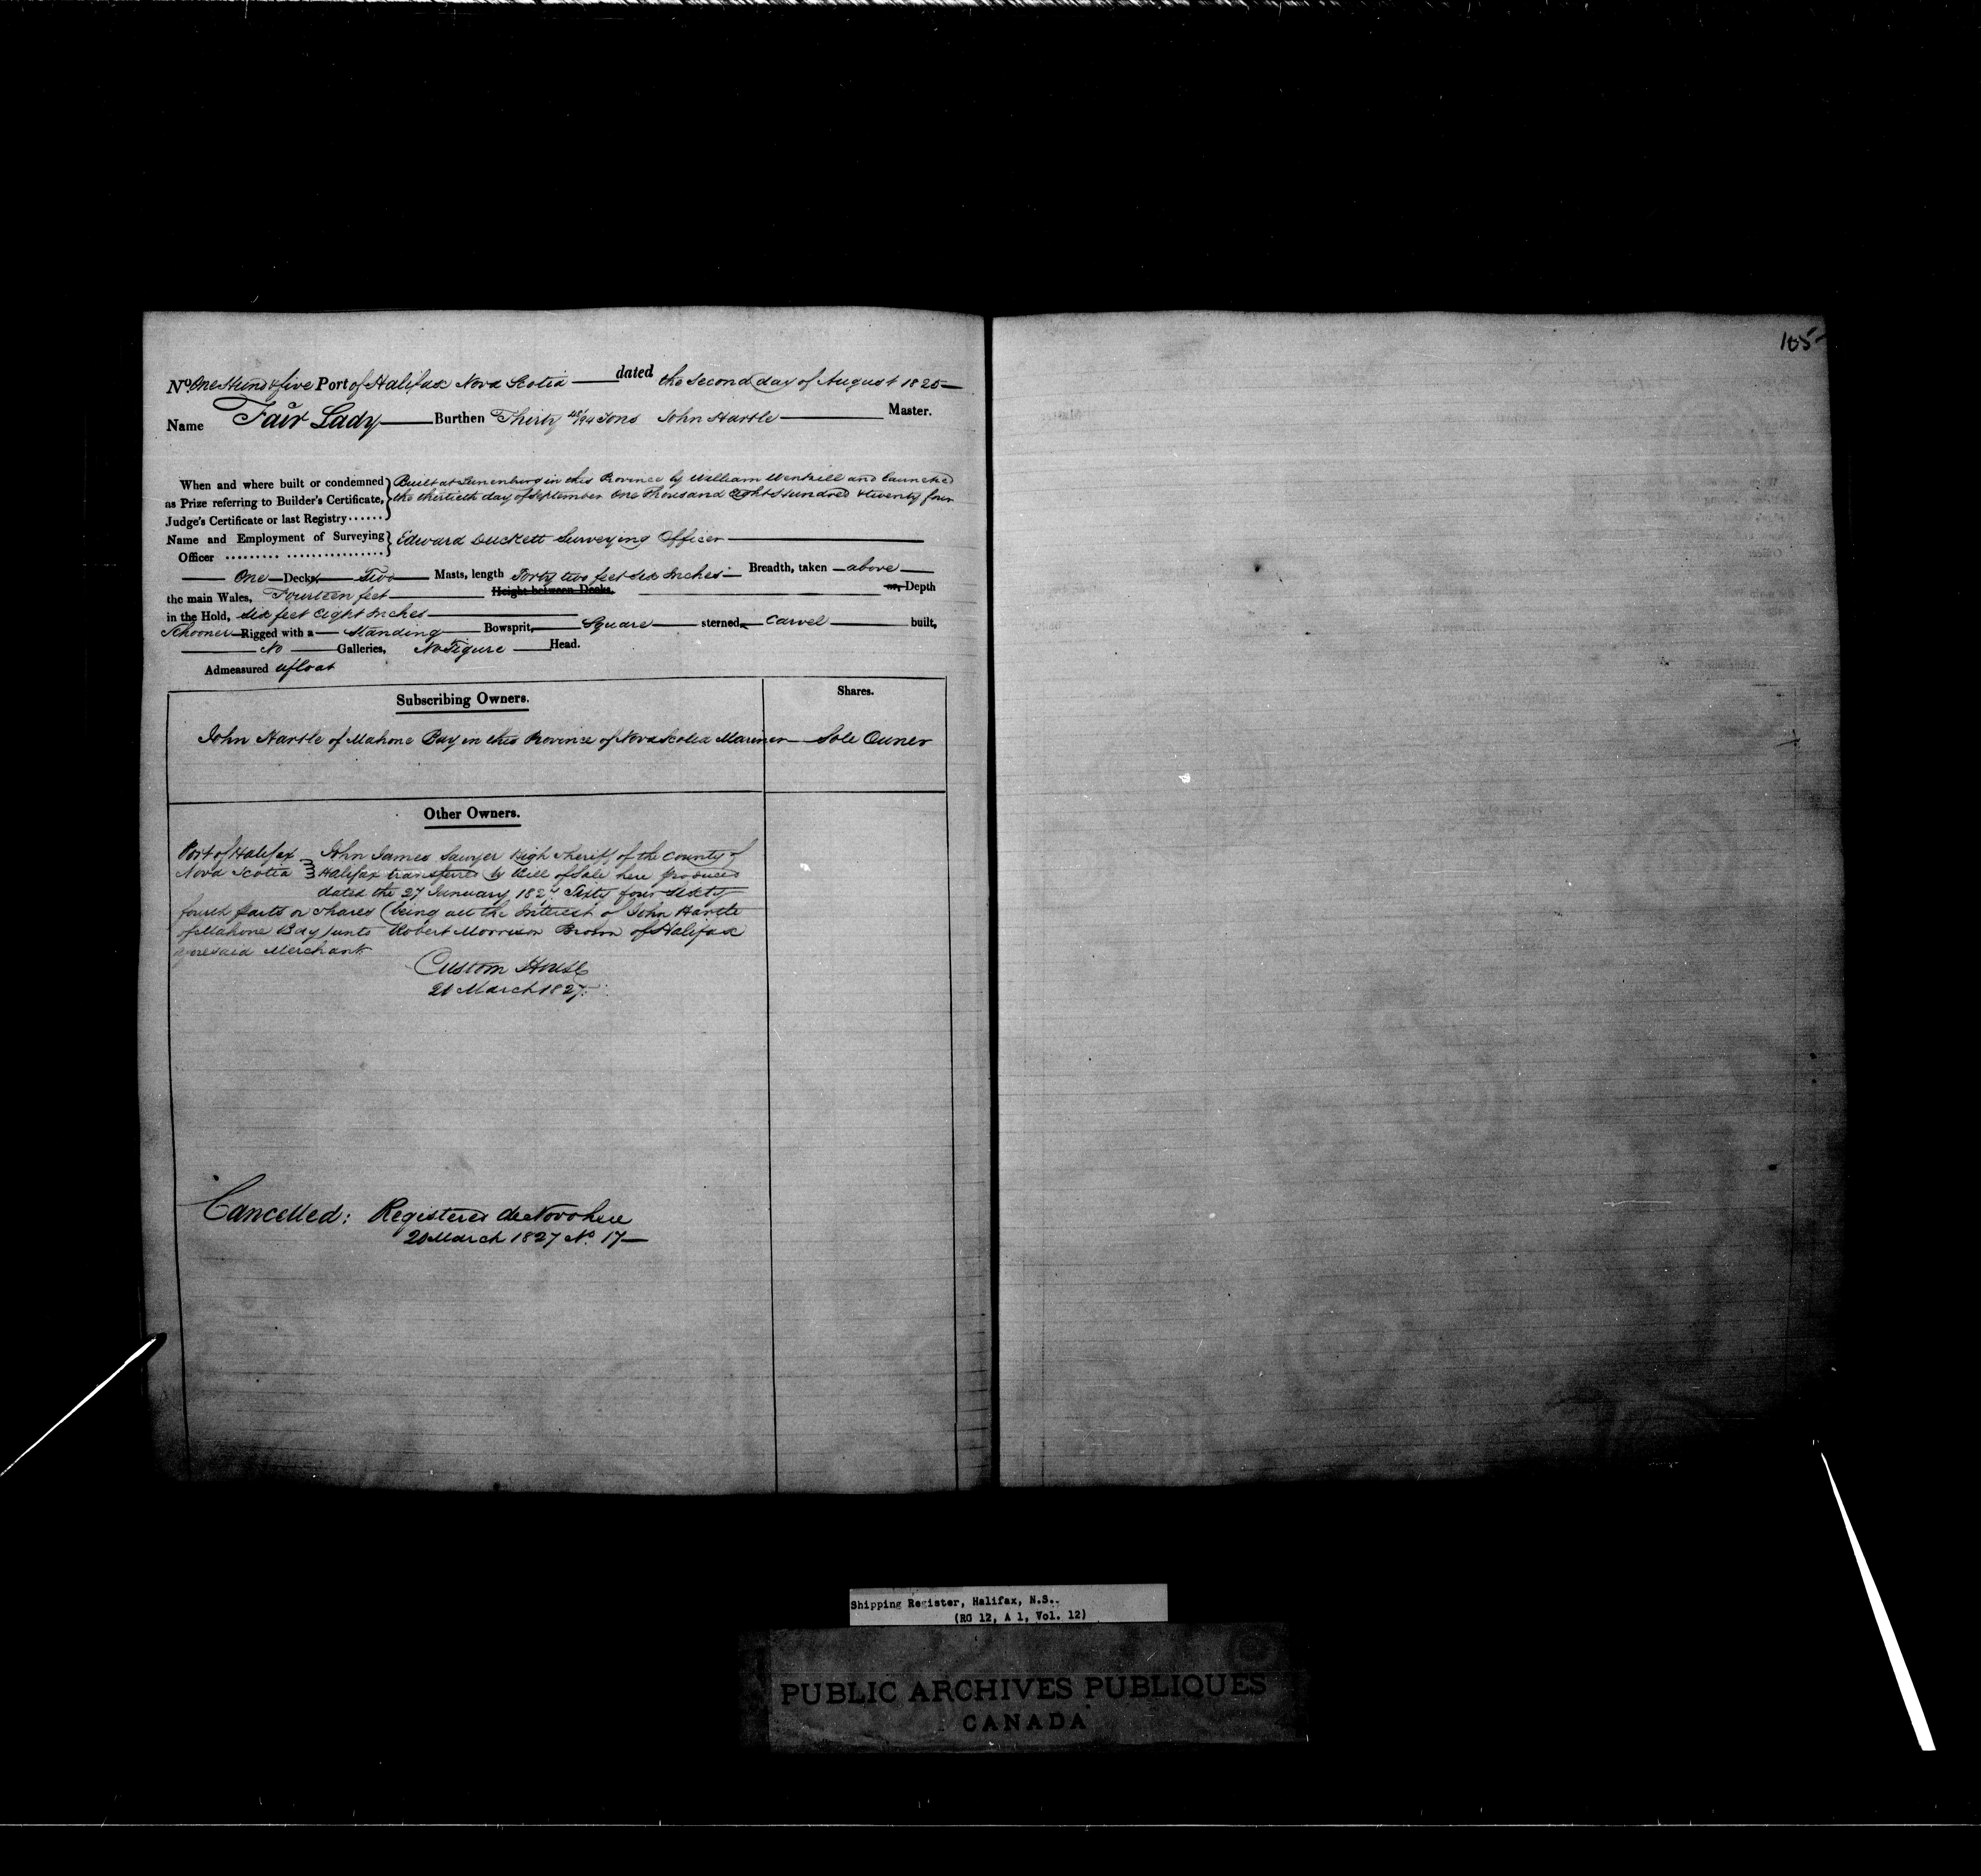 105
No One Hund & five Port of Halifax Nova Scotia dated the Second day of August 1825
Name Fair Lady Burthen Thirty 48/94 Tons John Hartle Master.
When and where built or condemned
as Prize referring to Builder's Certificate,
Judge's Certificate or last Registry ......
Built at Lunenburg in this Province by William and launched
the thirtieth day of September One Thousand Eight Hundred & twenty four
Name and Employment of Surveying
Officer ......... ................
Edward Duckett Surveying Officer
One Decks Two Masts, length Forty two feet Six Inches Breadth, taken above
the main Wales, Fourteen feet Height between Decks, or, Depth
in the Hold, Six feet Eight Inches
Schooner Rigged with a Standing Bowsprit, Square sterned, Carvel built,
No Galleries, No Figure Head.
Admeasured afloat
Subscribing Owners. Shares.
John Hartle of Mahone Bay in this Province of Nova Scotia Mariner Sole Owner
Other Owners.
Port of Halifax John James Sawyer High Sheriff of the County of
Nova Scotia Halifax transferred by Bill of Sale here produced
dated the 27 January 182 Sixty four Sixty
fourth parts or shares (being all the Interest of John Hartle
of Mahone Bay) unto Robert Morrison Brown of Halifax
aforesaid Merchant
Custom House
20 March 1827.
Cancelled: Registered de Novo here
20 March 1827 No. 17
Shipping Register, Halifax, N.S..
(RG 12, A 1, Vol. 12)
PUBLIC ARCHIVES PUBLIQUES
CANADA